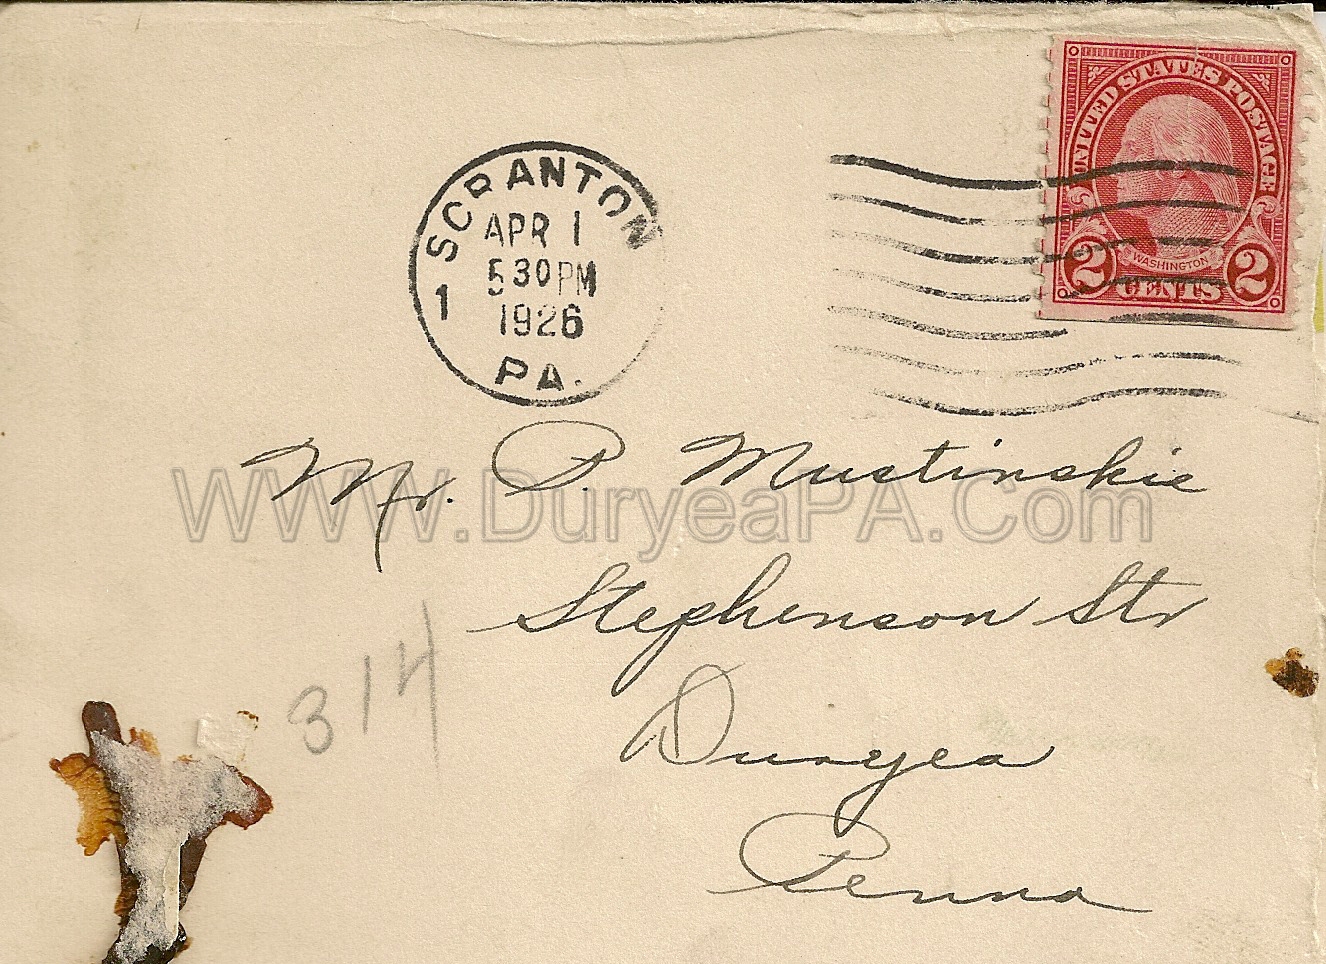 UNITED STATES POSTAGE
WASHINGTON
2 CENTS 2
SCRANTON
APR 1
530 PM
1926
1
PA.
Mr. P. Mustinskie
WWW.DuryeaPA.Com
Stephenson Str
314
Duryea
Penna